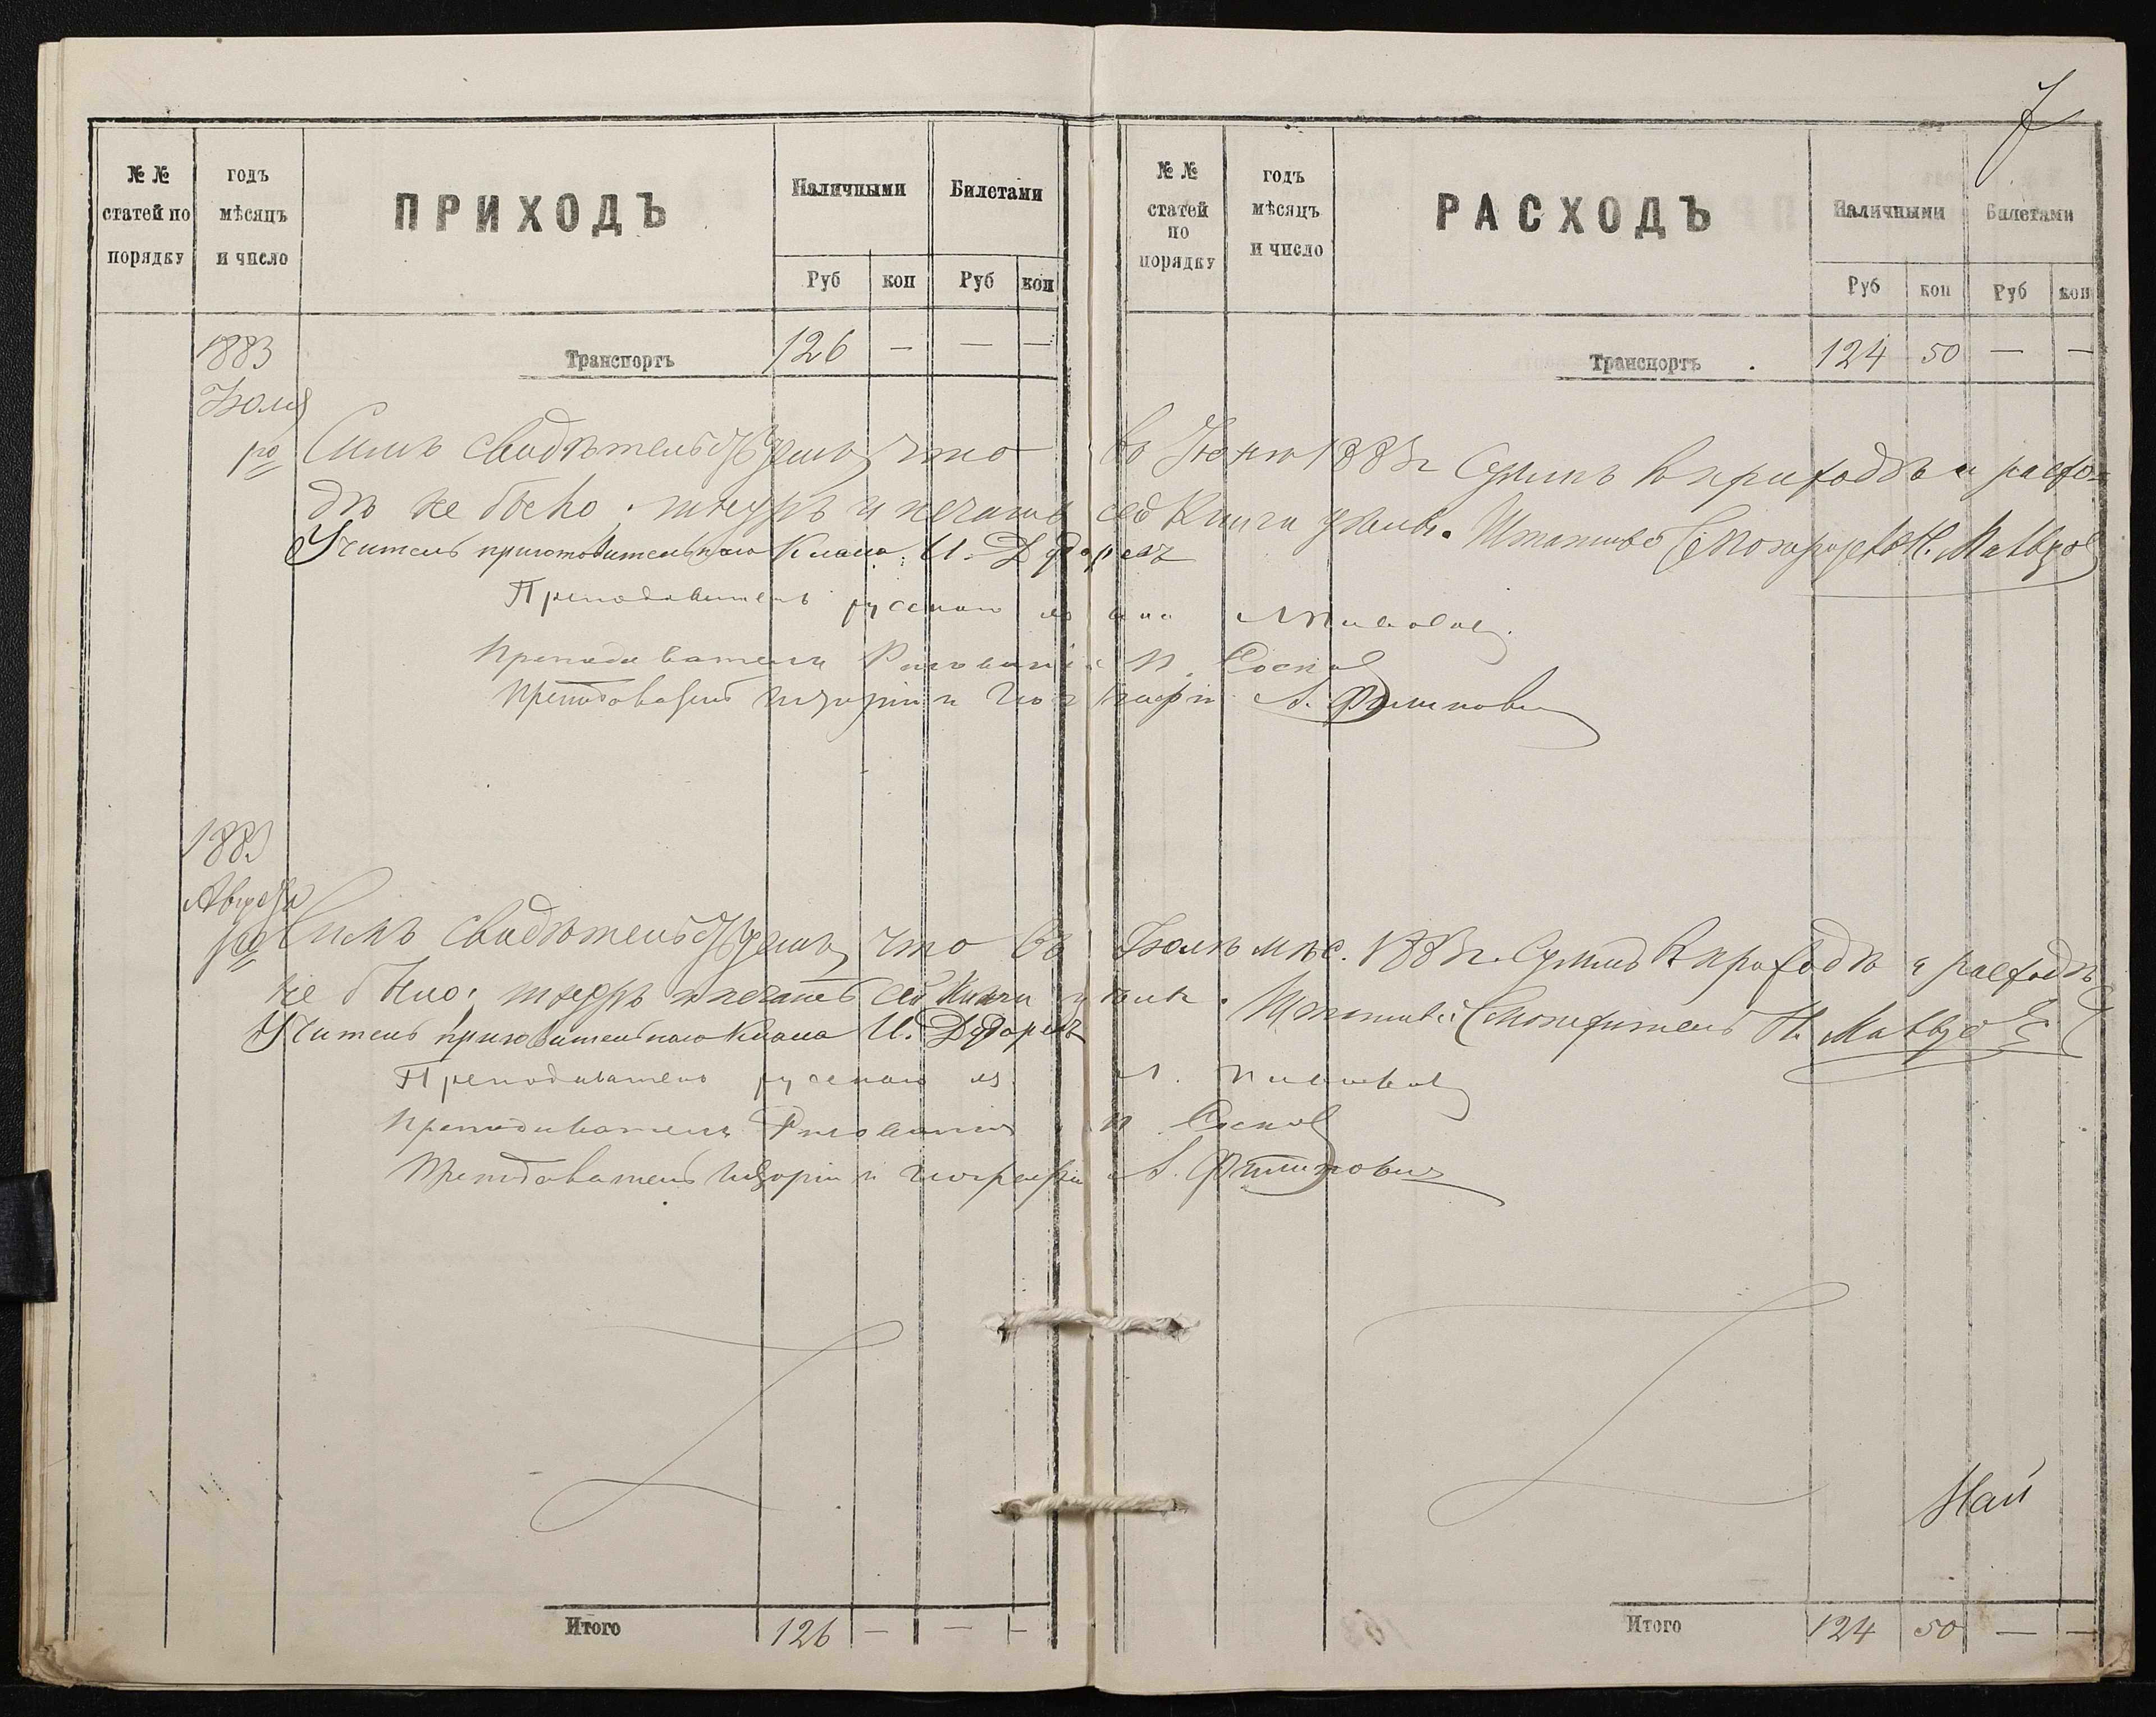 7
№ №
статей по
порядку
годъ
мѣсяцъ
и число
ПРИХОДЪ
Наличными
Билетами
Руб
коп
Руб
коп
№ №
статей
по
порядку
годъ
мѣсяцъ
и число
РАСХОДЪ
Наличными
Билетами
Руб
коп
Руб
коп
1883
Транспортъ 126 — — —
Транспортъ 124 50 — —
Іюля
1го Симъ свидѣтельствуемъ что въ Іюнѣ 1883г Суммъ въ приходѣ и расхо-
дѣ не было; шнуръ и печать сей Книги цѣлы. Штатный Смотритель Н.
Учитель приготовительнаго Класса: И.
Преподаватель русскаго языка
Преподаватель Рисованія П.
Преподаватель исторіи и географіи А. Филиповичъ
1883
Августа
1го Симъ свидѣтельствуемъ что въ Іюлѣ мѣс. 1883г. Суммъ въ приходѣ и расходѣ
не было; шнуръ и печать сей Книги цѣлы. Штатный Смотритель Н.
Учитель приготовительнаго Класса И.
Преподаватель русскаго яз.
Преподаватель Рисованія П
Преподаватель исторіи и географіи А. Филиповичъ
Итого 126 — — —
Итого 124 50 — —